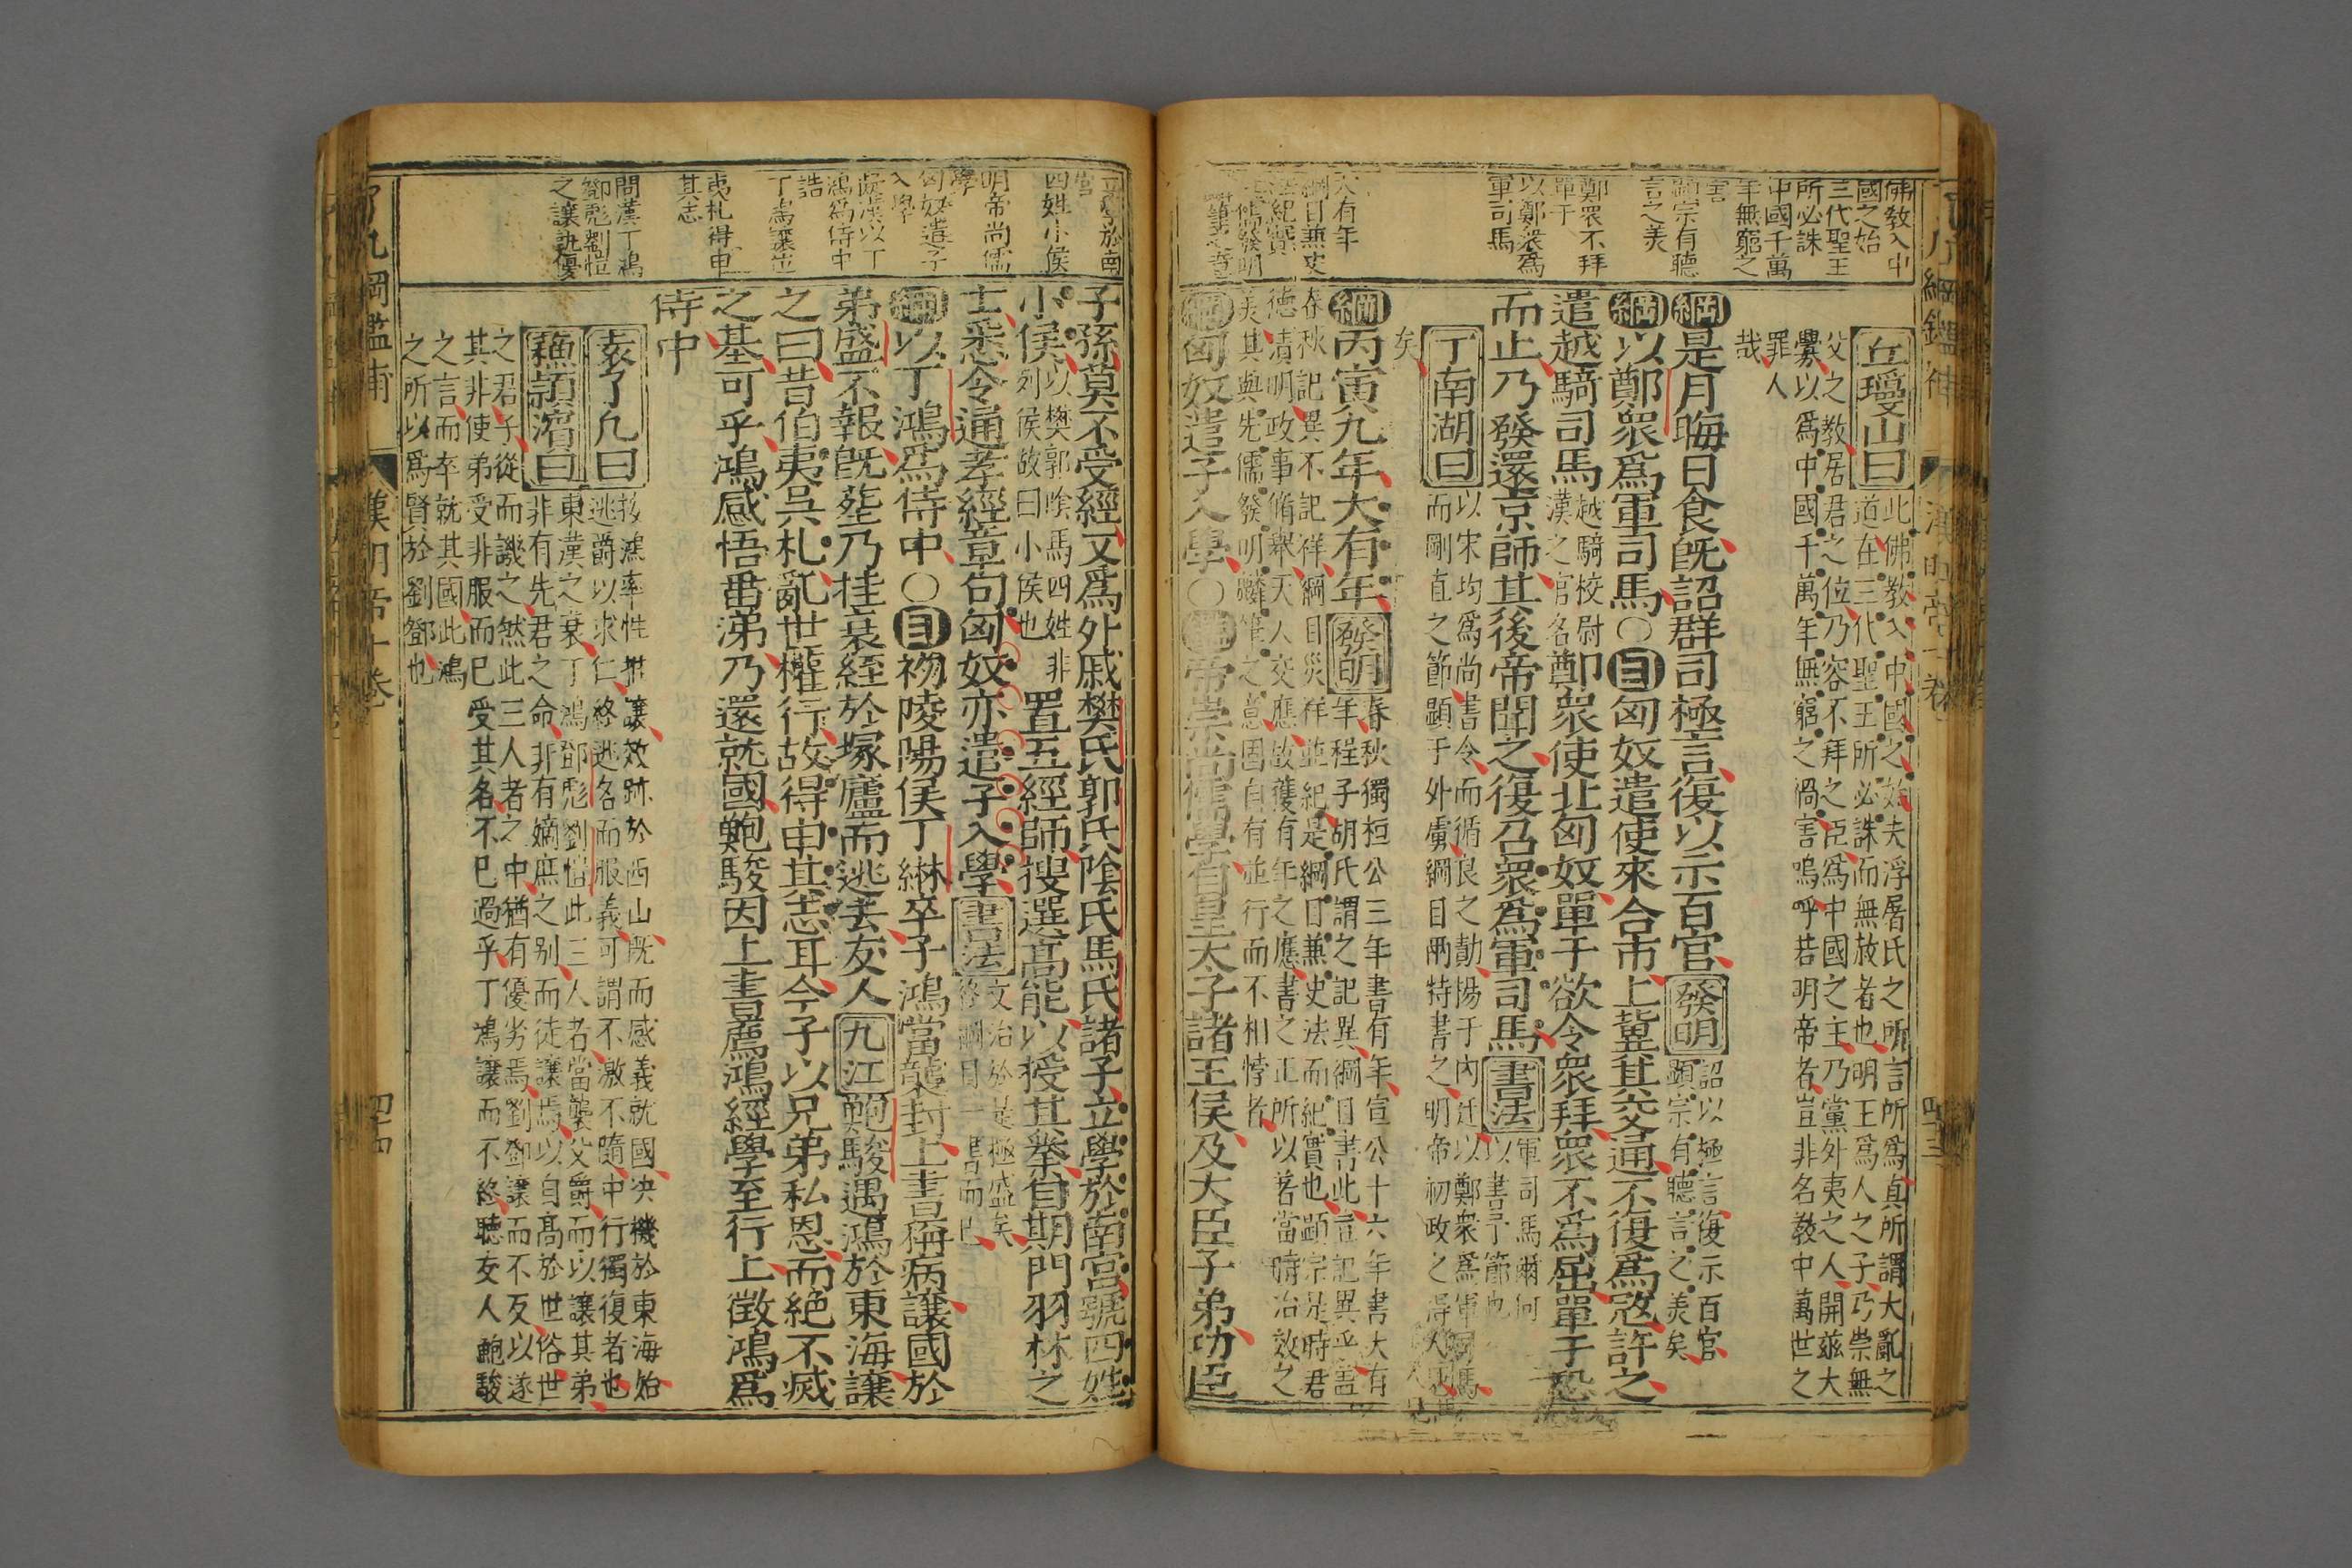 佛教入中
國之始
三代聖王
所必誅
中國千萬
年無窮之
害
顯宗有聽
言之美
鄭眾不拜
單于
以鄭眾爲
軍司馬
大有年
綱目兼史
法紀實
先儒發明
丘瓊山曰
此佛教入中國之始夫浮屠氏之所言所爲真所謂大亂之
道在三代聖王所必誅而無赦者也明王爲人之子乃崇無
父之教居君之位乃容不拜之臣爲中國之主乃黨外夷之人開茲大
釁以爲中國千萬年無窮之禍害嗚呼若明帝者豈非名教中萬世之
罪人
哉
綱是月晦日食旣詔群司極言復以示百官
發明
詔以極言復示百官
顯宗有聽言之美矣
綱以鄭眾爲軍司馬○目匈奴遣使來合市上冀其交通不復爲寇許之
遣越騎司馬
越騎校尉
漢之官名
鄭眾使北匈奴單于欲令眾拜眾不爲屈單于恐
而止乃發還京師其後帝聞之復召眾爲軍司馬
書法
軍司馬爾何
以書予節也
丁南湖曰
以宋均爲尚書令而循良之勣揚于內廷以鄭眾爲軍司馬
而剛直之節顯于外虜綱目兩特書之明帝初政之得人
矣
綱丙寅九年大有年
發明
春秋獨桓公三年書有年宣公十六年書大有
年程子胡氏謂之記異綱目書此豈記異乎蓋
春秋記異不記祥綱目災祥並紀是綱目兼史法而紀實也顯宗是時君
德清明政事脩舉天人交應故獲有年之應書之正所以著當時治效之
美其與先儒發明麟筆之意固自有並行而不相悖者
綱匈奴遣子入學○目帝崇尚儒學自皇太子諸王侯及大臣子弟功臣
漢明帝十卷
四十三
立學於南
宮
四姓小侯
明帝尚儒
學
匈奴遣子
入學
東漢以丁
鴻爲侍中
丁鴻讓岀
誥
夷札得申
其志
問漢丁鴻
鄧彪劉愷
之讓孰優
子孫莫不受經又爲外戚樊氏郭氏陰氏馬氏諸子立學於南宮號四姓
小侯
以樊郭陰馬四姓非
列侯故曰小侯也
置五經師搜選高能以授其業自期門羽林之
士悉令通孝經章句匈奴亦遣子入學
書法
文治於是極盛矣
終綱目一書而已
綱以丁鴻爲侍中○目初陵陽侯丁綝卒子鴻當襲封上書稱病讓國於
弟盛不報旣葬乃挂衰絰於塚廬而逃去友人九江鮑駿遇鴻於東海讓
之曰昔伯夷吳札亂世權行故得申其志耳今子以兄弟私恩而絕不滅
之基可乎鴻感悟垂涕乃還就國鮑駿因上書薦鴻經學至行上徵鴻爲
侍中
袁了凡曰
按鴻率性推讓效跡於西山旣而感義就國决機於東海始
逃爵以求仁終逃名而服義可謂不激不隨中行獨復者也
蘇潁濱曰
東漢之衰丁鴻鄧彪劉愷此三人者當襲父爵而以讓其弟
非有先君之命非有嫡庶之别而徒讓焉以自高於世俗世
之君子從而譏之然此三人者之中猶有優劣焉劉鄧讓而不反以遂
其非使弟受非服而已受其名不巳過乎丁鴻讓而不終聽友人鮑駿
之言而卒就其國此鴻
之所以爲賢於劉鄧也
了凡綱鑑補
漢明帝十卷
四十四